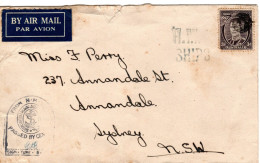 BY AIR MAIL
PAR AVION
SHIPS
Miss F Perry
237, Annandale St.
Annandale.
Sydney.
N.S.W.